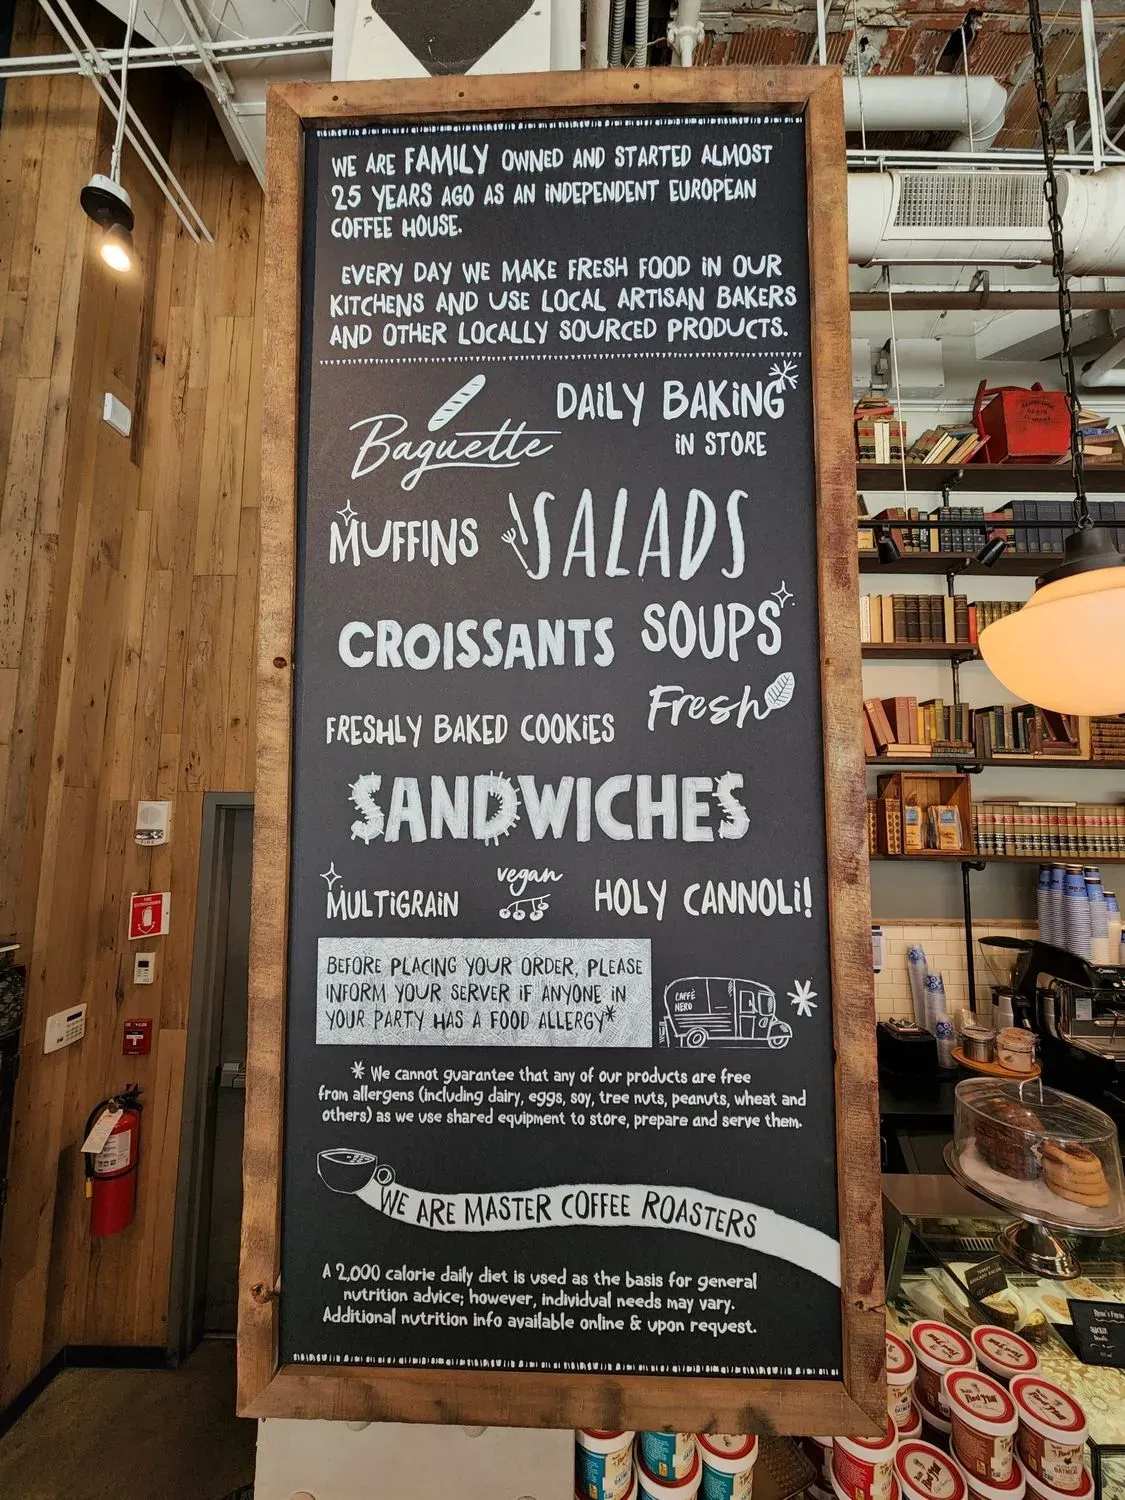 WE ARE FAMILY OWNED AND STARTED ALMOST
25 YEARS AGO AS AN INDEPENDENT EUROPEAN
COFFEE HOUSE.
EVERY DAY WE MAKE FRESH FOOD IN OUR
KITCHENS AND USE LOCAL ARTISAN BAKERS
AND OTHER LOCALLY SOURCED PRODUCTS.
DAILY BAKING
IN STORE
Baguette
MUFFINS
SALADS
CROISSANTS
SOUPS
Fresh
FRESHLY BAKED COOKIES
SANDWICHES
MULTIGRAIN
vegan
HOLY CANNOLI!
BEFORE PLACING YOUR ORDER, PLEASE
INFORM YOUR SERVER IF ANYONE IN
YOUR PARTY HAS A FOOD ALLERGY*
CAFFÈ
NERO
* We cannot guarantee that any of our products are free
from allergens (including dairy, eggs, soy, tree nuts, peanuts, wheat and
others) as we use shared equipment to store, prepare and serve them.
WE ARE MASTER COFFEE ROASTERS
A 2,000 calorie daily diet is used as the basis for general
nutrition advice; however, individual needs may vary.
Additional nutrition info available online & upon request.
FIRE
FIRE
EXTINGUISHER
Red Mill
Red Mill